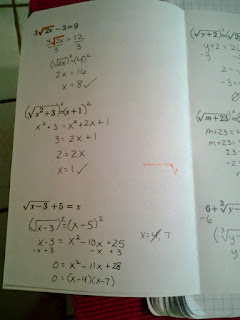 3√2x − 3 = 9
3√2x/3 = 12/3
(√2x)² = (4)²
2x = 16
x = 8 ✓
(√x² + 3)² = (x + 1)²
x² + 3 = x² + 2x + 1
3 = 2x + 1
2 = 2x
x = 1 ✓
√x − 3 + 5 = x
(√x−3)² = (x − 5)²
x − 3 = x² − 10x + 25
−x + 3 −x + 3
0 = x² − 11x + 28
0 = (x−4)(x−7)
x = 4, 7
(√y + 2
y + 2
y
(√m + 23
m + 23
m + 23
23
6 + ∛y
−6
(∛y